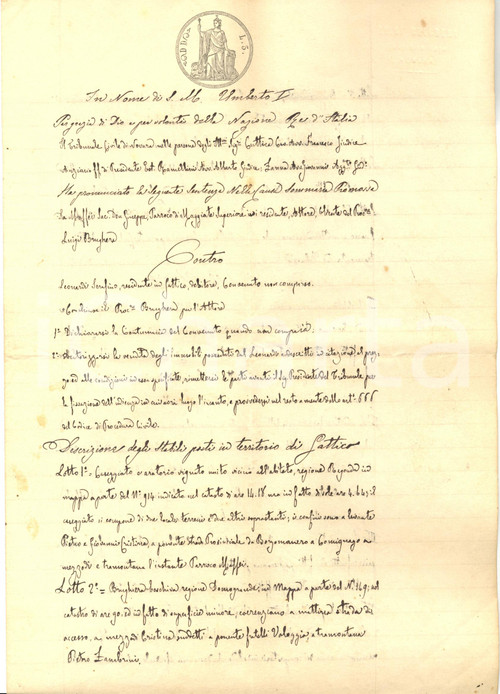 ADDO L.5.
In Nome di S. M. Umberto I.
Per grazia di Dio e per volontà della Nazione Re d'Italia
Il Tribunale Civile di Novara nelle persone degli Ill.mi Sig.i Cav. Avv. Francesco Giudice
Anziano ff. di Presidente Avv. Alberto Giudice; Zanna Avv. Giovanni Agg.to Giud.
Ha pronunciato la seguente Sentenza Nella Causa Sommaria Promossa
Da Maffei Sac. Don Giuseppe Parroco di Maggiate Superiore ivi residente, Attore, Cliente del Proc.
Luigi Brughera
Contro
Leonardi Serafino, residente in Gattico, debitore, Convenuto non comparso.
Conclusioni del Proc.e Brughera per l'Attore
1° Dichiararsi la Contumacia del Convenuto quando non comparisse;
2° Autorizzarsi la vendita degli Immobili posseduti dal Leonardi e descritti in citazione al
prezzo ed alle condizioni in essa specificate, rimettersi le parti avanti il Sig. Presidente del Tribunale per
la fissazione dell'Udienza in cui avrà luogo l'incanto, e provvedersi nel resto a mente dell'art.° 666
del Codice di Procedura Civile.
Descrizione degli Stabili posti in territorio di Gattico
Lotto 1° = Caseggiato e aratorio vignato unito vicino all'abitato, regione in
mappa a parte del N° 914 indicato nel catasto di are 14.18 ma in fatto d'are 4.64; il
caseggiato si compone di due locali terreni e due altri soprastanti; i confini sono a levante
Pietro e Giovanni Cristina, a ponente strada Provinciale da Borgomanero a Comignago a
mezzodì e tramontana l'instante Parroco Maffei,
Lotto 2° = Brughiera boschiva regione in Mappa a parte del N° 149; nel
catasto di are 90. ed in fatto di superficie minore, coerenziano a mattina strada di
accesso, a mezzodì Cristina suddetti a ponente fratelli Valaggia; a tramontana
Pietro Zamborini,